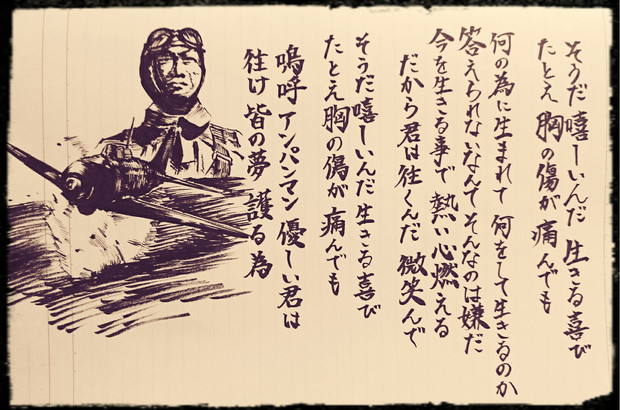 そうだ嬉しいんだ 生きる喜び
たとえ 胸の傷が 痛んでも
何の為に生まれて 何をして生きるのか
答えられないなんて そんなのは嫌だ
今を生きる事で 熱い心燃える
だから君は往くんだ 微笑んで
そうだ嬉しいんだ 生きる喜び
たとえ 胸の傷が 痛んでも
嗚呼 アンパンマン 優しい君は
往け 皆の夢 護る為